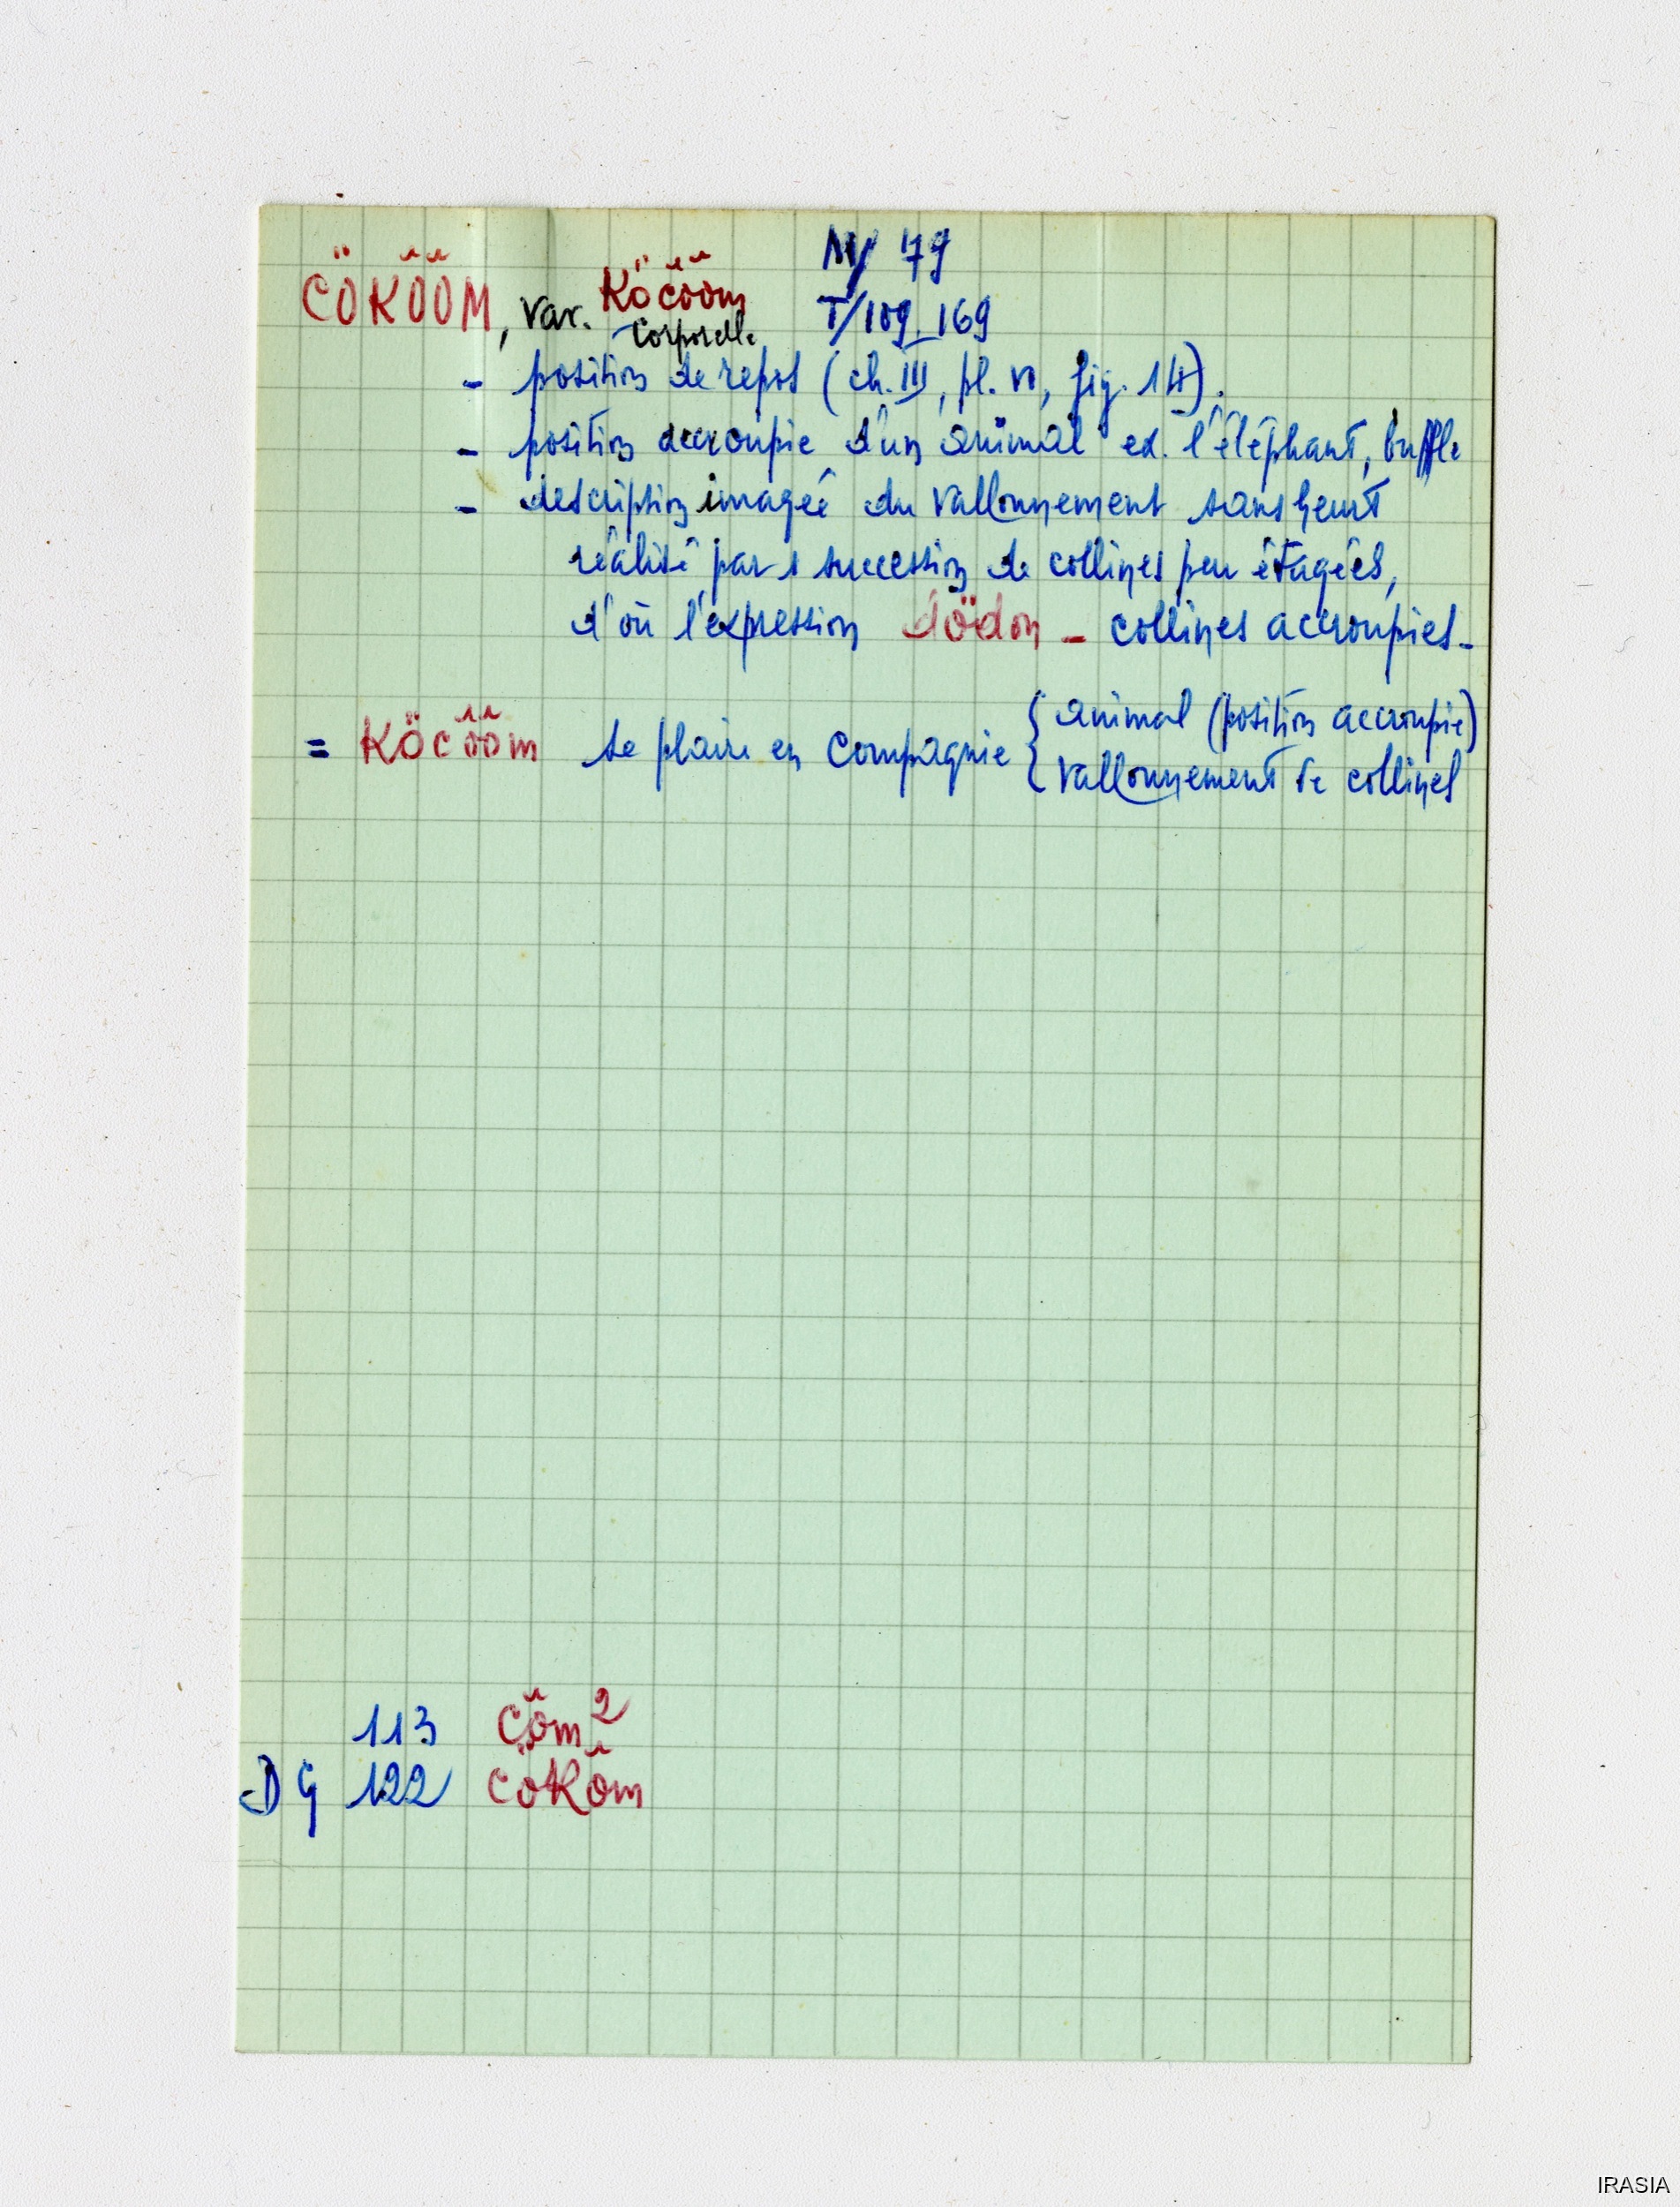 CÖKÖ̆Ö̆M, var. Köcö̆ö̆m M/ 79
corporelle T/109_169
- position de repos (ch. III, pl. VI, fig. 14).
- position accroupie d'un animal ex. l'éléphant, buffle
- description imagée du vallonnement sans heurt
réalisé par 1 succession de collines peu étagées,
d'où l'expression dödon - collines accroupies -
= Köcö̆ö̆m se plaire en compagnie { animal (position accroupie)
vallonnement de collines
113 cö̆m 2
DG 122 cökö̆m
IRASIA